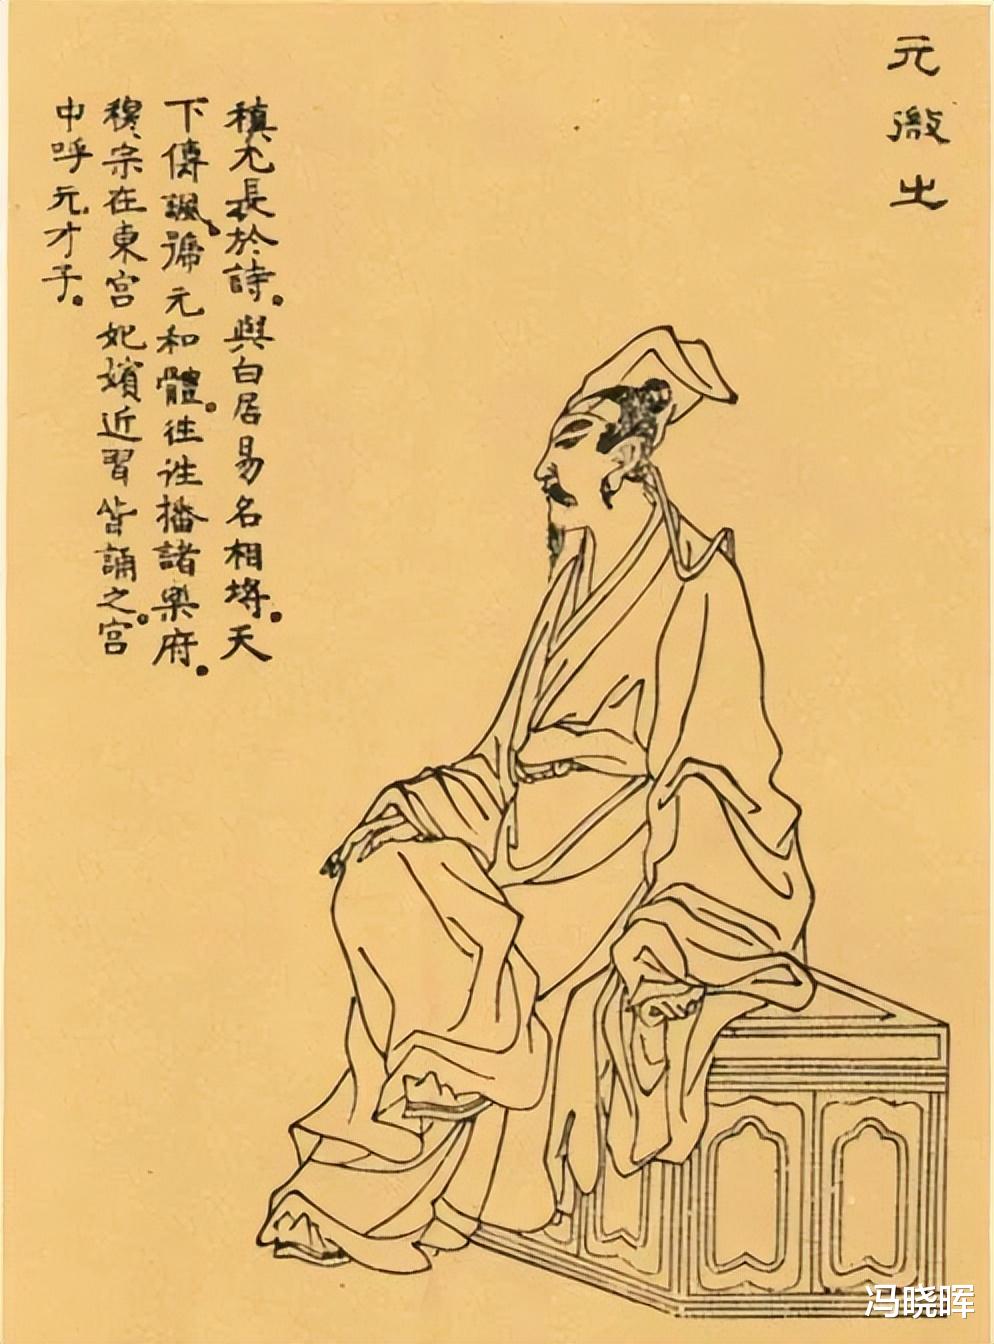 元微之
稹尤長於詩。與白居易名相埒。天
下傳諷。號元和體。往往播諸樂府。
穆宗在東宮妃嬪近習皆誦之。宮
中呼元才子。
冯晓晖